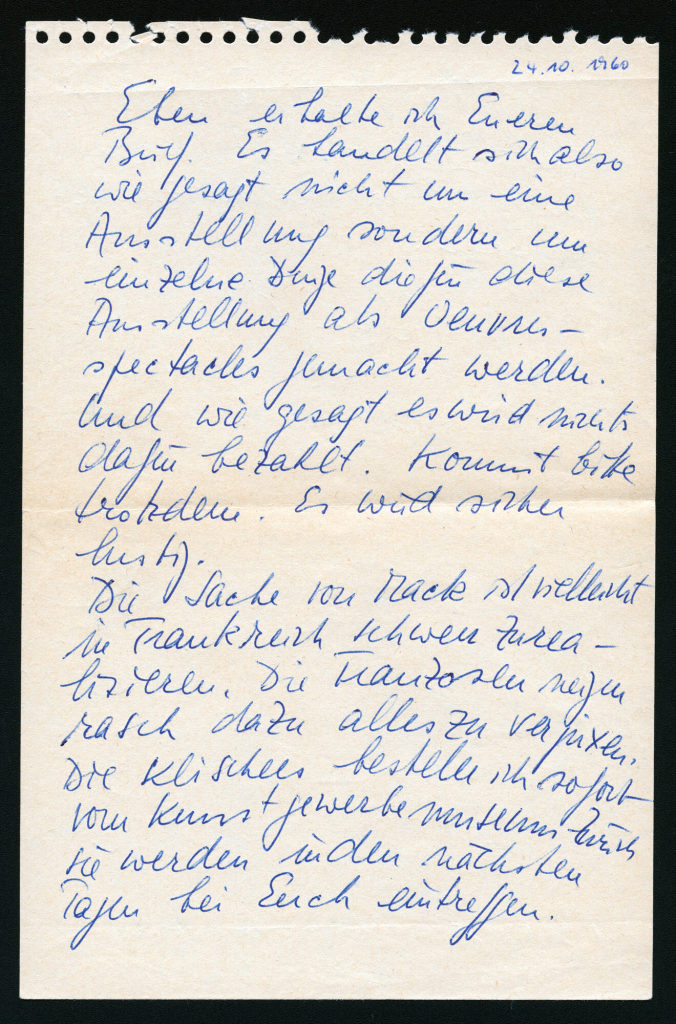 24.10.1960
Eben erhalte ich Eueren
Brief. Es handelt sich also
wie gesagt nicht um eine
Ausstellung sondern um
einzelne Dinge die für diese
Ausstellung als Oeuvres-
spectacles gemacht werden.
Und wie gesagt es wird nichts
dafür bezahlt. Kommt bitte
trotzdem. Es wird sicher
lustig.
Die Sache von Mack ist vielleicht
in Frankreich schwer zu rea-
lisieren. Die Franzosen neigen
rasch dazu alles zu
Die Klischees bestelle ich sofort
vom Kunstgewerbemuseum Zürich
sie werden in den nächsten
Tagen bei Euch eintreffen.